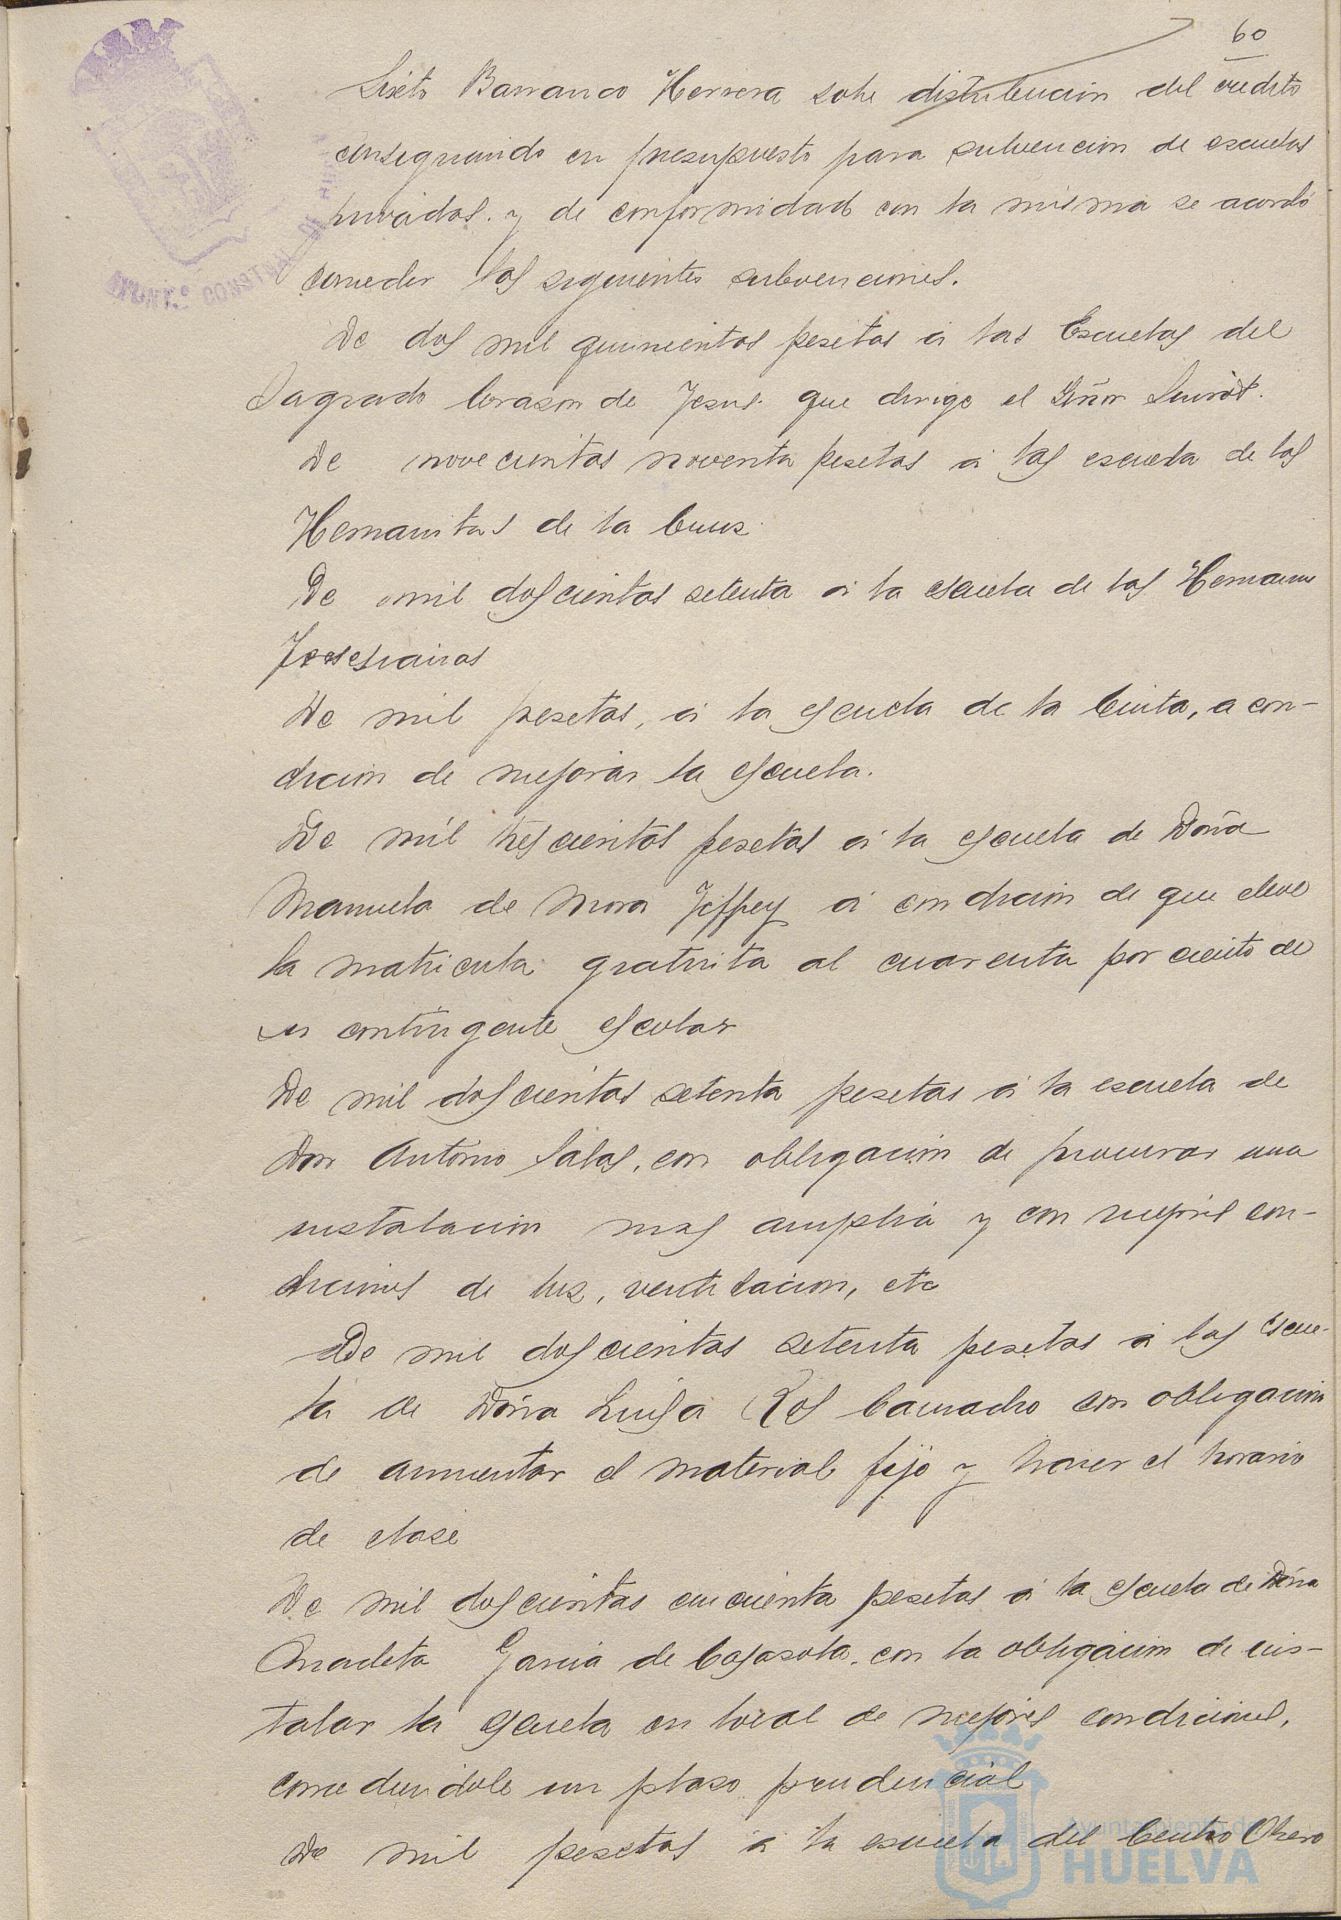 60
Sixto Barranco Herrera sobre distribucion del credito
consignando en presupuesto para subvencion de escuelas
privadas. y de conformidad con la misma se acordó
conceder las siguientes subvenciones.
De dos mil quinientas pesetas á las Escuelas del
Sagrado Corazon de Jesus. que dirige el Señor Siurot.
De novecientas noventa pesetas á las escuela de las
Hermanitas de la Cruz.
De mil doscientas setenta á la escuela de las Hermanas
De mil pesetas, á la escuela de la Cinta, a con-
dicion de mejorar la escuela.
De mil trescientas pesetas á la escuela de Doña
Manuela de Mora Jeffrey á condicion de que eleve
la matricula gratuita al cuarenta por ciento de
su contingente escolar
De mil doscientas setenta pesetas á la escuela de
Don Antonio Salas, con obligacion de procurar una
instalacion mas amplia y con mejores con-
diciones de luz, ventilacion, etc
De mil doscientas setenta pesetas á las escue-
la de Doña Luisa Ros Camacho con obligacion
de aumentar el material fijo y hacer el horario
de clase
De mil doscientas cincuenta pesetas á la escuela de Doña
Anacleta Garcia de Cogasota, con la obligacion de ins-
talar la escuela en local de mejores condiciones,
concediendole un plazo prudencial
De mil pesetas á la escuela del Centro Obrero
AYUNT.º CONSTITNAL DE HUELVA
Ayuntamiento de
HUELVA